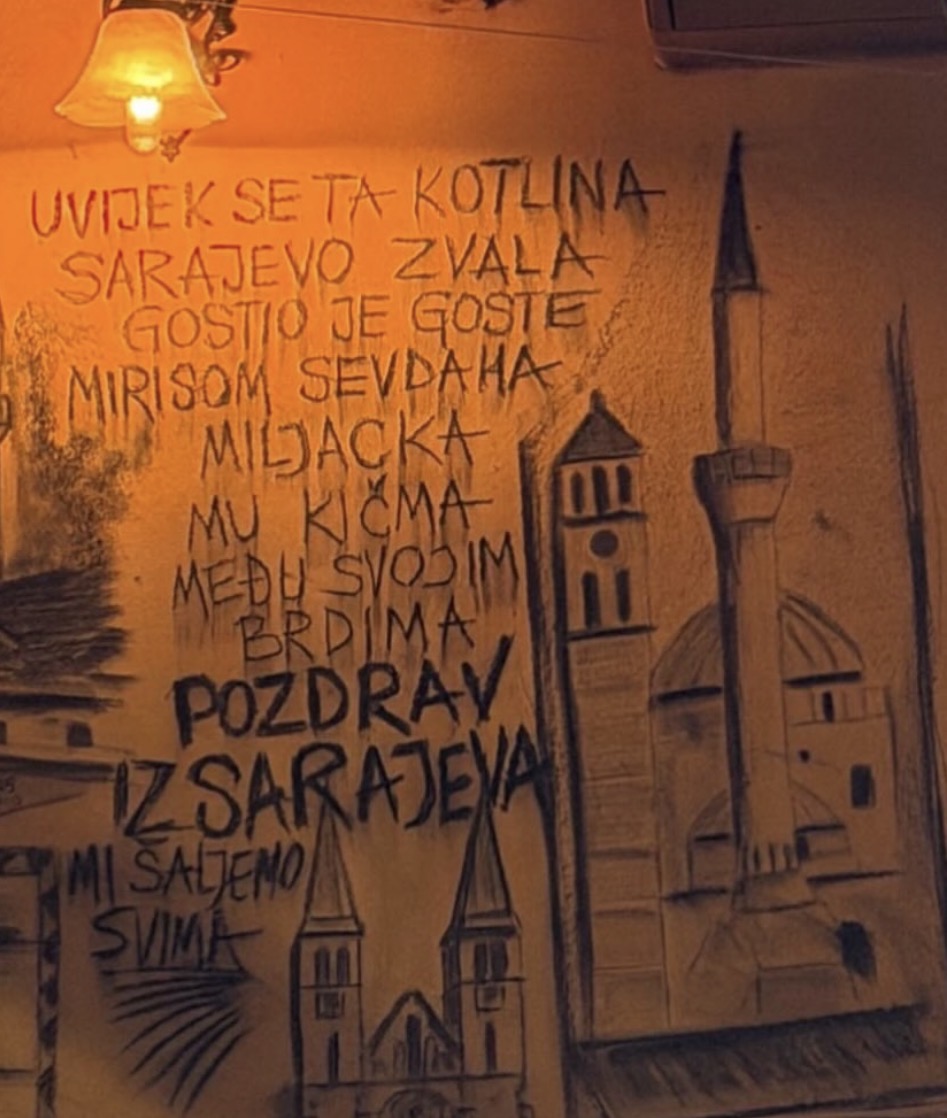 UVIJEK SE TA KOTLINA
SARAJEVO ZVALA
GOSTIO JE GOSTE
MIRISOM SEVDAHA
MILJACKA
MU KIČMA
MEĐU SVOJIM
BRDIMA
POZDRAV
IZ SARAJEVA
MI ŠALJEMO
SVIMA